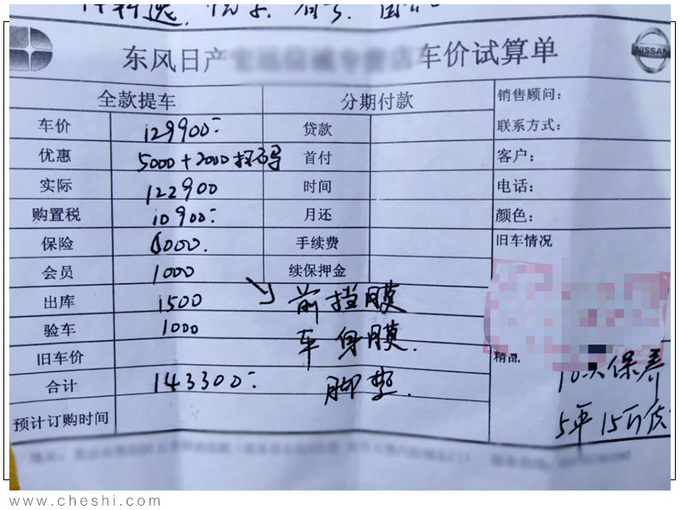 东风日产 车价试算单
NISSAN
全款提车 分期付款 销售顾问：
车价 129900 贷款 联系方式：
优惠 5000+2000扫码 首付 客户：
实际 122900 时间 电话：
购置税 10900 月还 颜色：
保险 6000 手续费 旧车情况
会员 1000 续保押金
出库 1500 前挡膜
验车 1000 车身膜
旧车价 精品
合计 143300 脚垫 10次保养
预计订购时间 5年15万
www.cheshi.com